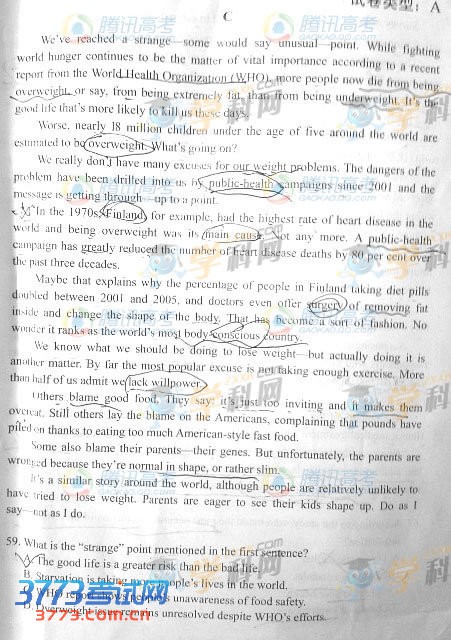 试卷类型：A
C
We've reached a strange—some would say unusual—point. While fighting
world hunger continues to be the matter of vital importance according to a recent
report from the World Health Organization (WHO), more people now die from being
overweight, or say, from being extremely fat, than from being underweight. It's the
good life that's more likely to kill us these days.
Worse, nearly 18 million children under the age of five around the world are
estimated to be overweight. What's going on?
We really don't have many excuses for our weight problems. The dangers of the
problem have been drilled into us by public-health campaigns since 2001 and the
message is getting through—up to a point.
In the 1970s, Finland, for example, had the highest rate of heart disease in the
world and being overweight was its main cause. Not any more. A public-health
campaign has greatly reduced the number of heart disease deaths by 80 per cent over
the past three decades.
Maybe that explains why the percentage of people in Finland taking diet pills
doubled between 2001 and 2005, and doctors even offer surgery of removing fat
inside and change the shape of the body. That has become a sort of fashion. No
wonder it ranks as the world's most body-conscious country.
We know what we should be doing to lose weight—but actually doing it is
another matter. By far the most popular excuse is not taking enough exercise. More
than half of us admit we lack willpower.
Others blame good food. They say: it's just too inviting and it makes them
overeat. Still others lay the blame on the Americans, complaining that pounds have
piled on thanks to eating too much American-style fast food.
Some also blame their parents—their genes. But unfortunately, the parents are
wronged because they're normal in shape, or rather slim.
It's a similar story around the world, although people are relatively unlikely to
have tried to lose weight. Parents are eager to see their kids shape up. Do as I
say—not as I do.
59. What is the "strange" point mentioned in the first sentence?
A. The good life is a greater risk than the bad life.
B. Starvation is taking more people's lives in the world.
C. WHO report shows people's unawareness of food safety.
D. Overweight issue remains unresolved despite WHO's efforts.
腾讯高考
学科网
3773考试网
3773.com.cn